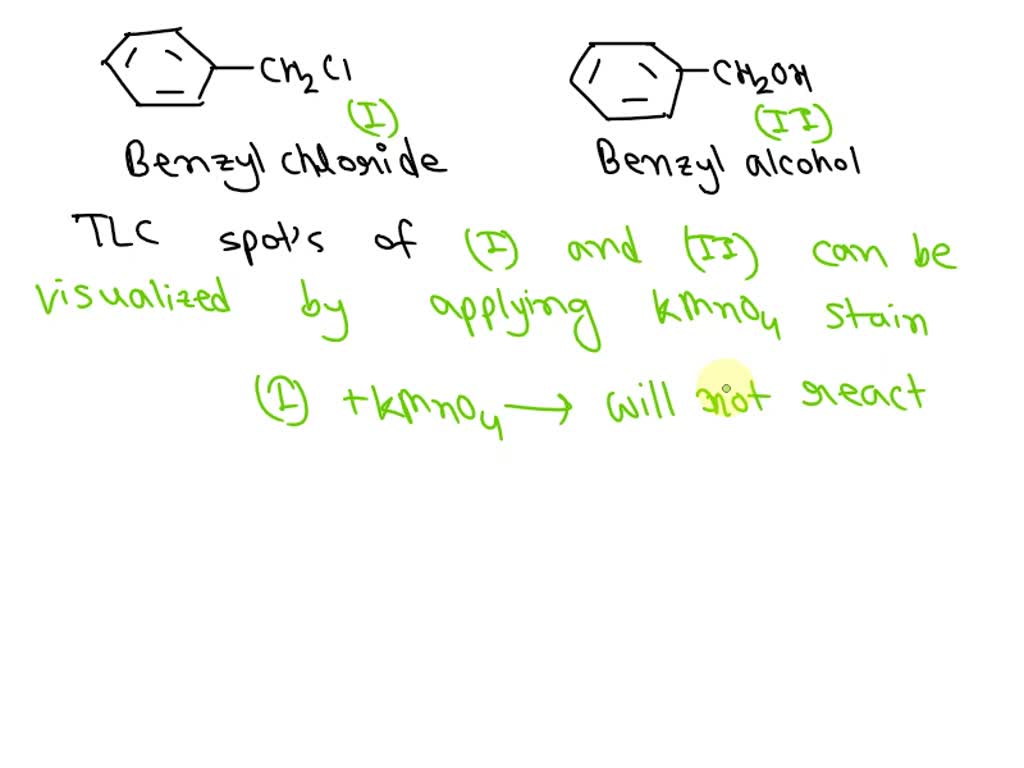 CH2Cl
CH2OH
(I)
(II)
Benzyl chloride
Benzyl alcohol
TLC spot's of (I) and (II) can be
visualized by applying kMnO4 stain
(I) + kMnO4 → will not react